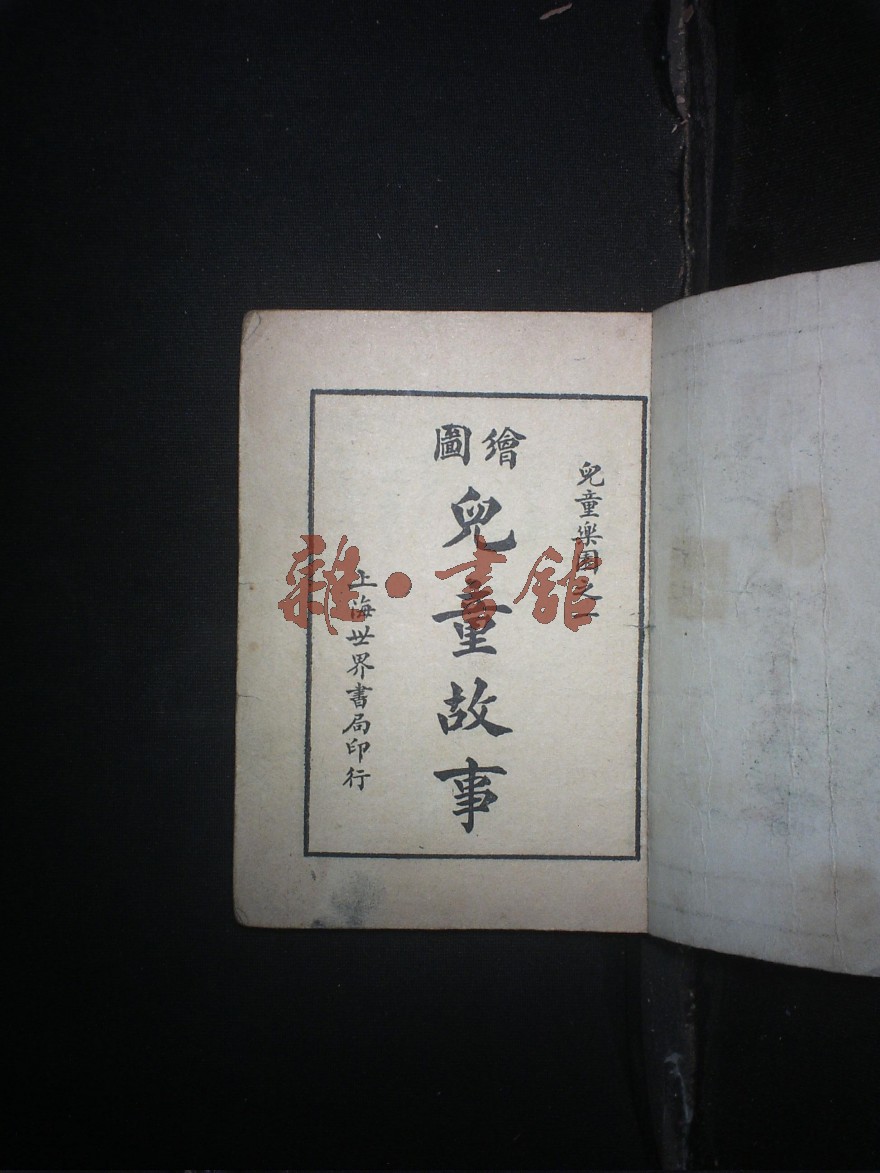 兒童樂園之一
繪圖
兒童故事
上海世界書局印行
雜·書館